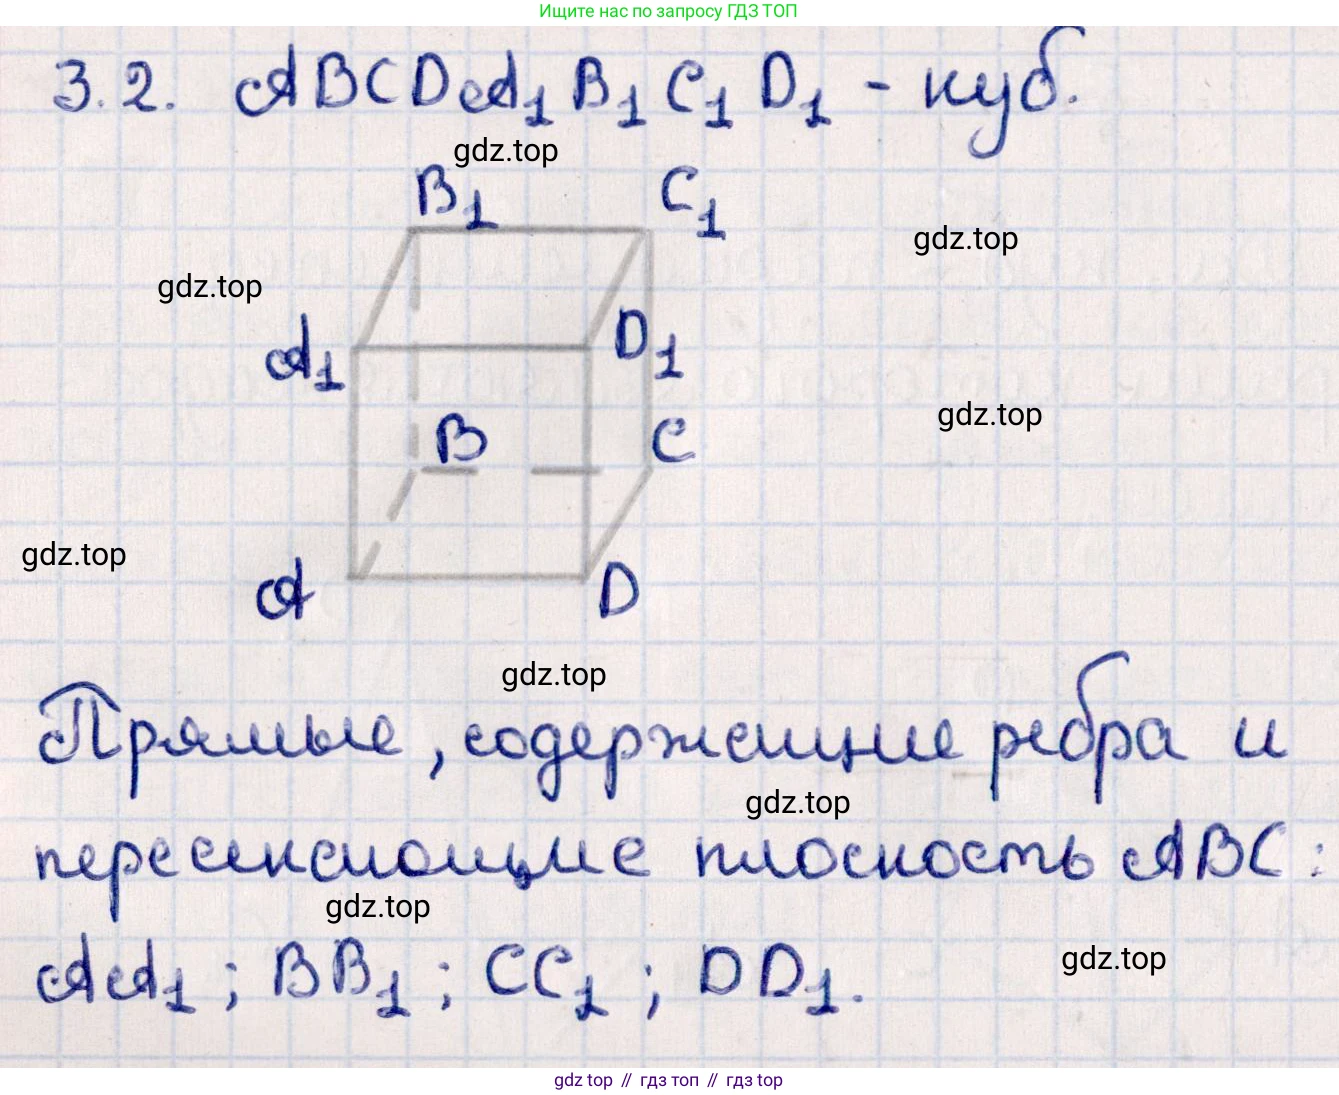 Ищите нас по запросу ГДЗ ТОП
3.2. ABCDA₁B₁C₁D₁ - куб.
gdz.top
B₁ C₁
gdz.top
gdz.top
A₁ D₁
gdz.top
B C
gdz.top
A D
gdz.top
Прямые, содержащие ребра и
gdz.top
пересекающие плоскость ABC:
gdz.top
AA₁; BB₁; CC₁; DD₁.
gdz.top
gdz top // гдз топ // гдз top